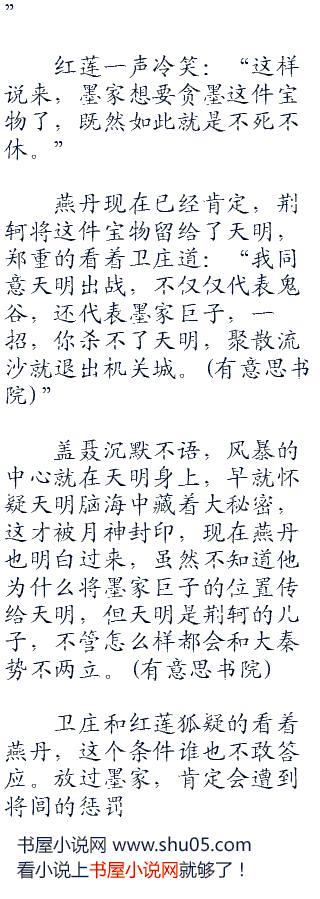 ”
红莲一声冷笑：“这样
说来，墨家想要贪墨这件宝
物了，既然如此就是不死不
休。”
燕丹现在已经肯定，荆
轲将这件宝物留给了天明，
郑重的看着卫庄道：“我同
意天明出战，不仅仅代表鬼
谷，还代表墨家巨子，一
招，你杀不了天明，聚散流
沙就退出机关城。(有意思书
院)”
盖聂沉默不语，风暴的
中心就在天明身上，早就怀
疑天明脑海中藏着大秘密，
这才被月神封印，现在燕丹
也明白过来，虽然不知道他
为什么将墨家巨子的位置传
给天明，但天明是荆轲的儿
子，不管怎么样都会和大秦
势不两立。(有意思书院)
卫庄和红莲狐疑的看着
燕丹，这个条件谁也不敢答
应。放过墨家，肯定会遭到
将闾的惩罚
书屋小说网 www.shu05.com
看小说上书屋小说网就够了！